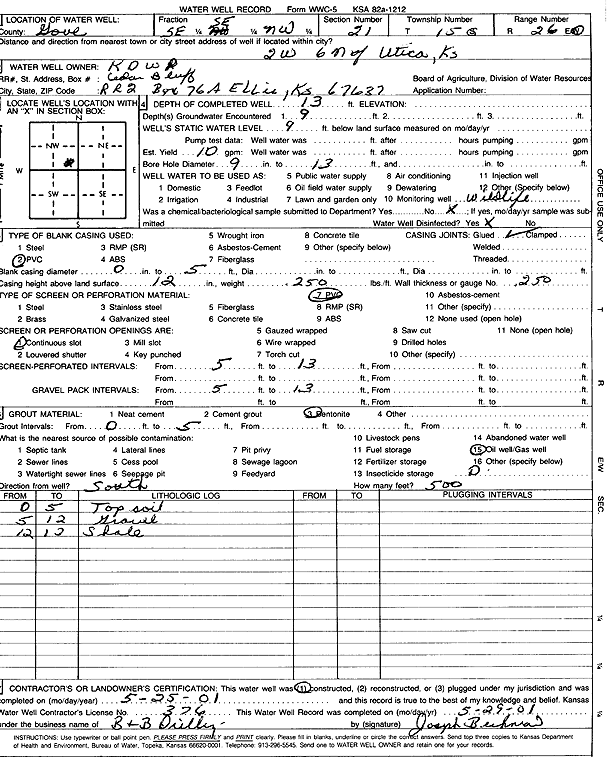 WATER WELL RECORD Form WWC-5 KSA 82a-1212
LOCATION OF WATER WELL: Fraction SE Section Number Township Number Range Number
County: Gove SE ¼ ¼ NW ¼ 21 T 15 S R 26 E
Distance and direction from nearest town or city street address of well if located within city?
2W 6 N of Utica, Ks
2 WATER WELL OWNER: K D W P
RR#, St. Address, Box # : Cedar Bluff Board of Agriculture, Division of Water Resources
City, State, ZIP Code : RR2 Box 76A Ellis, Ks 67637 Application Number:
LOCATE WELL'S LOCATION WITH AN "X" IN SECTION BOX:
N
NW NE
W E
SW SE
S
1 Mile
4 DEPTH OF COMPLETED WELL 13 ft. ELEVATION:
Depth(s) Groundwater Encountered 1. 9 ft. 2. ft. 3. ft.
WELL'S STATIC WATER LEVEL 9 ft. below land surface measured on mo/day/yr
Pump test data: Well water was ft. after hours pumping gpm
Est. Yield 10 gpm: Well water was ft. after hours pumping gpm
Bore Hole Diameter 9 in. to 13 ft., and in. to ft.
WELL WATER TO BE USED AS: 5 Public water supply 8 Air conditioning 11 Injection well
1 Domestic 3 Feedlot 6 Oil field water supply 9 Dewatering 12 Other (Specify below)
2 Irrigation 4 Industrial 7 Lawn and garden only 10 Monitoring well Wildlife
Was a chemical/bacteriological sample submitted to Department? Yes No X; If yes, mo/day/yr sample was sub-
mitted Water Well Disinfected? Yes X No
TYPE OF BLANK CASING USED: 5 Wrought iron 8 Concrete tile CASING JOINTS: Glued Clamped
1 Steel 3 RMP (SR) 6 Asbestos-Cement 9 Other (specify below) Welded
2 PVC 4 ABS 7 Fiberglass Threaded
Blank casing diameter 0 in. to 5 ft., Dia in. to ft., Dia in. to ft.
Casing height above land surface 12 in., weight .250 lbs./ft. Wall thickness or gauge No. .250
TYPE OF SCREEN OR PERFORATION MATERIAL: 7 PVC 10 Asbestos-cement
1 Steel 3 Stainless steel 5 Fiberglass 8 RMP (SR) 11 Other (specify)
2 Brass 4 Galvanized steel 6 Concrete tile 9 ABS 12 None used (open hole)
SCREEN OR PERFORATION OPENINGS ARE: 5 Gauzed wrapped 8 Saw cut 11 None (open hole)
1 Continuous slot 3 Mill slot 6 Wire wrapped 9 Drilled holes
2 Louvered shutter 4 Key punched 7 Torch cut 10 Other (specify)
SCREEN-PERFORATED INTERVALS: From 5 ft. to 13 ft., From ft. to ft.
From ft. to ft., From ft. to ft.
GRAVEL PACK INTERVALS: From 5 ft. to 13 ft., From ft. to ft.
From ft. to ft., From ft. to ft.
GROUT MATERIAL: 1 Neat cement 2 Cement grout 3 Bentonite 4 Other
Grout Intervals: From 0 ft. to 5 ft., From ft. to ft., From ft. to ft.
What is the nearest source of possible contamination: 10 Livestock pens 14 Abandoned water well
1 Septic tank 4 Lateral lines 7 Pit privy 11 Fuel storage 15 Oil well/Gas well
2 Sewer lines 5 Cess pool 8 Sewage lagoon 12 Fertilizer storage 16 Other (specify below)
3 Watertight sewer lines 6 Seepage pit 9 Feedyard 13 Insecticide storage
Direction from well? South How many feet? 500
FROM TO LITHOLOGIC LOG FROM TO PLUGGING INTERVALS
0 5 Top soil
5 12 Gravel
12 13 Shale
CONTRACTOR'S OR LANDOWNER'S CERTIFICATION: This water well was (1) constructed, (2) reconstructed, or (3) plugged under my jurisdiction and was
completed on (mo/day/year) 5-25-01 and this record is true to the best of my knowledge and belief. Kansas
Water Well Contractor's License No. 376 This Water Well Record was completed on (mo/day/yr) 5-29-01
under the business name of B+B Drilling by (signature)
INSTRUCTIONS: Use typewriter or ball point pen. PLEASE PRESS FIRMLY and PRINT clearly. Please fill in blanks, underline or circle the correct answers. Send top three copies to Kansas Department
of Health and Environment, Bureau of Water, Topeka, Kansas 66620-0001. Telephone: 913-296-5545. Send one to WATER WELL OWNER and retain one for your records.
OFFICE USE ONLY
T
R
E/W
SEC.
¼
¼
¼